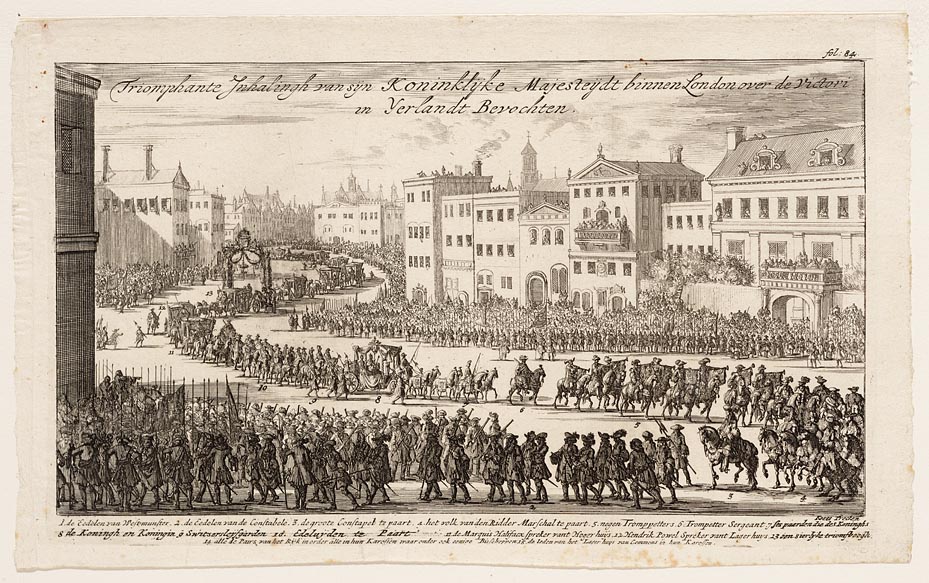 fol: 84
Triomphante Inhalingh van syn Koninklyke Majesteydt binnen London over de Victori
in Yerlandt Bevochten.
1. de Eedelen van Westmunster. 2. de Eedelen van de Constabels. 3. de groote Constapel te paart. 4. het volk van den Ridder Marschal te paart. 5. negen Tromppetters. 6. Trompetter Sergeant. 7. ses paerden die des Koninghs
8 de Koningh en Koningin 9 Switzersse garden 10. Edeluyden te Paart 11 de Marquis Halifax spreker vant Hoger huys. 12 Hendrik Powel Spreker vant Lager huys 13 een sierlyke triumfboogh
14. alle de Pairs van het Ryk in order alle in hun Karossen waar onder ook de leden van het Lager huys van Commons in hun Karossen.